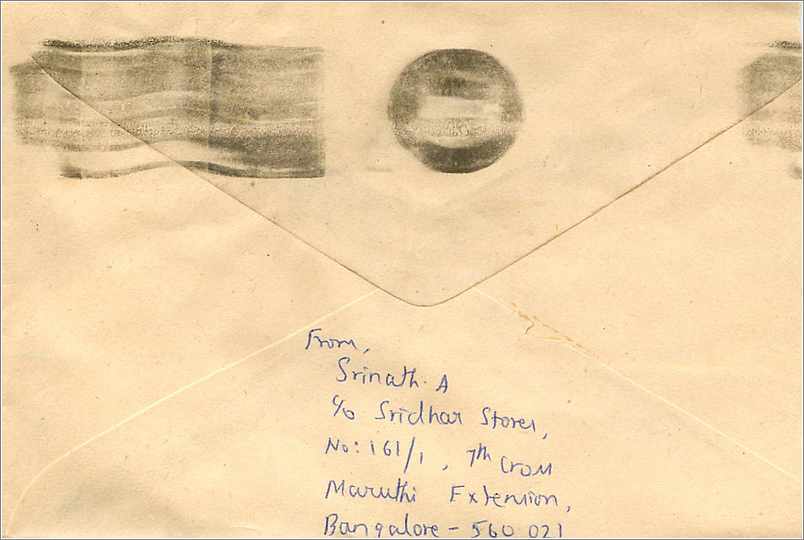 From,
Srinath. A
c/o Sridhar Stores,
No: 161/1, 7th Cross
Maruthi Extension,
Bangalore - 560 021